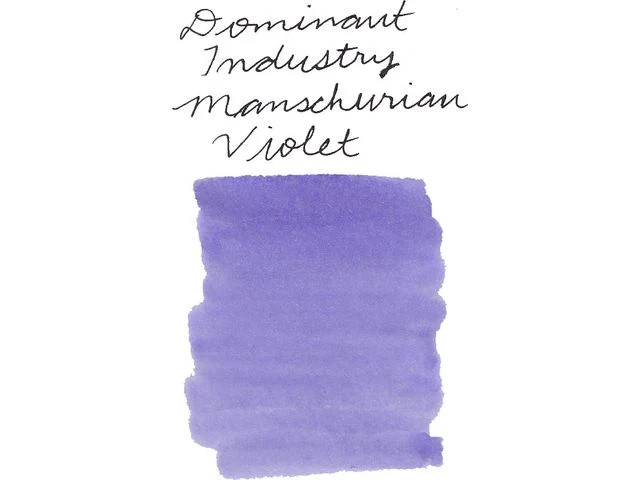 Dominant
Industry
Manschurian
Violet